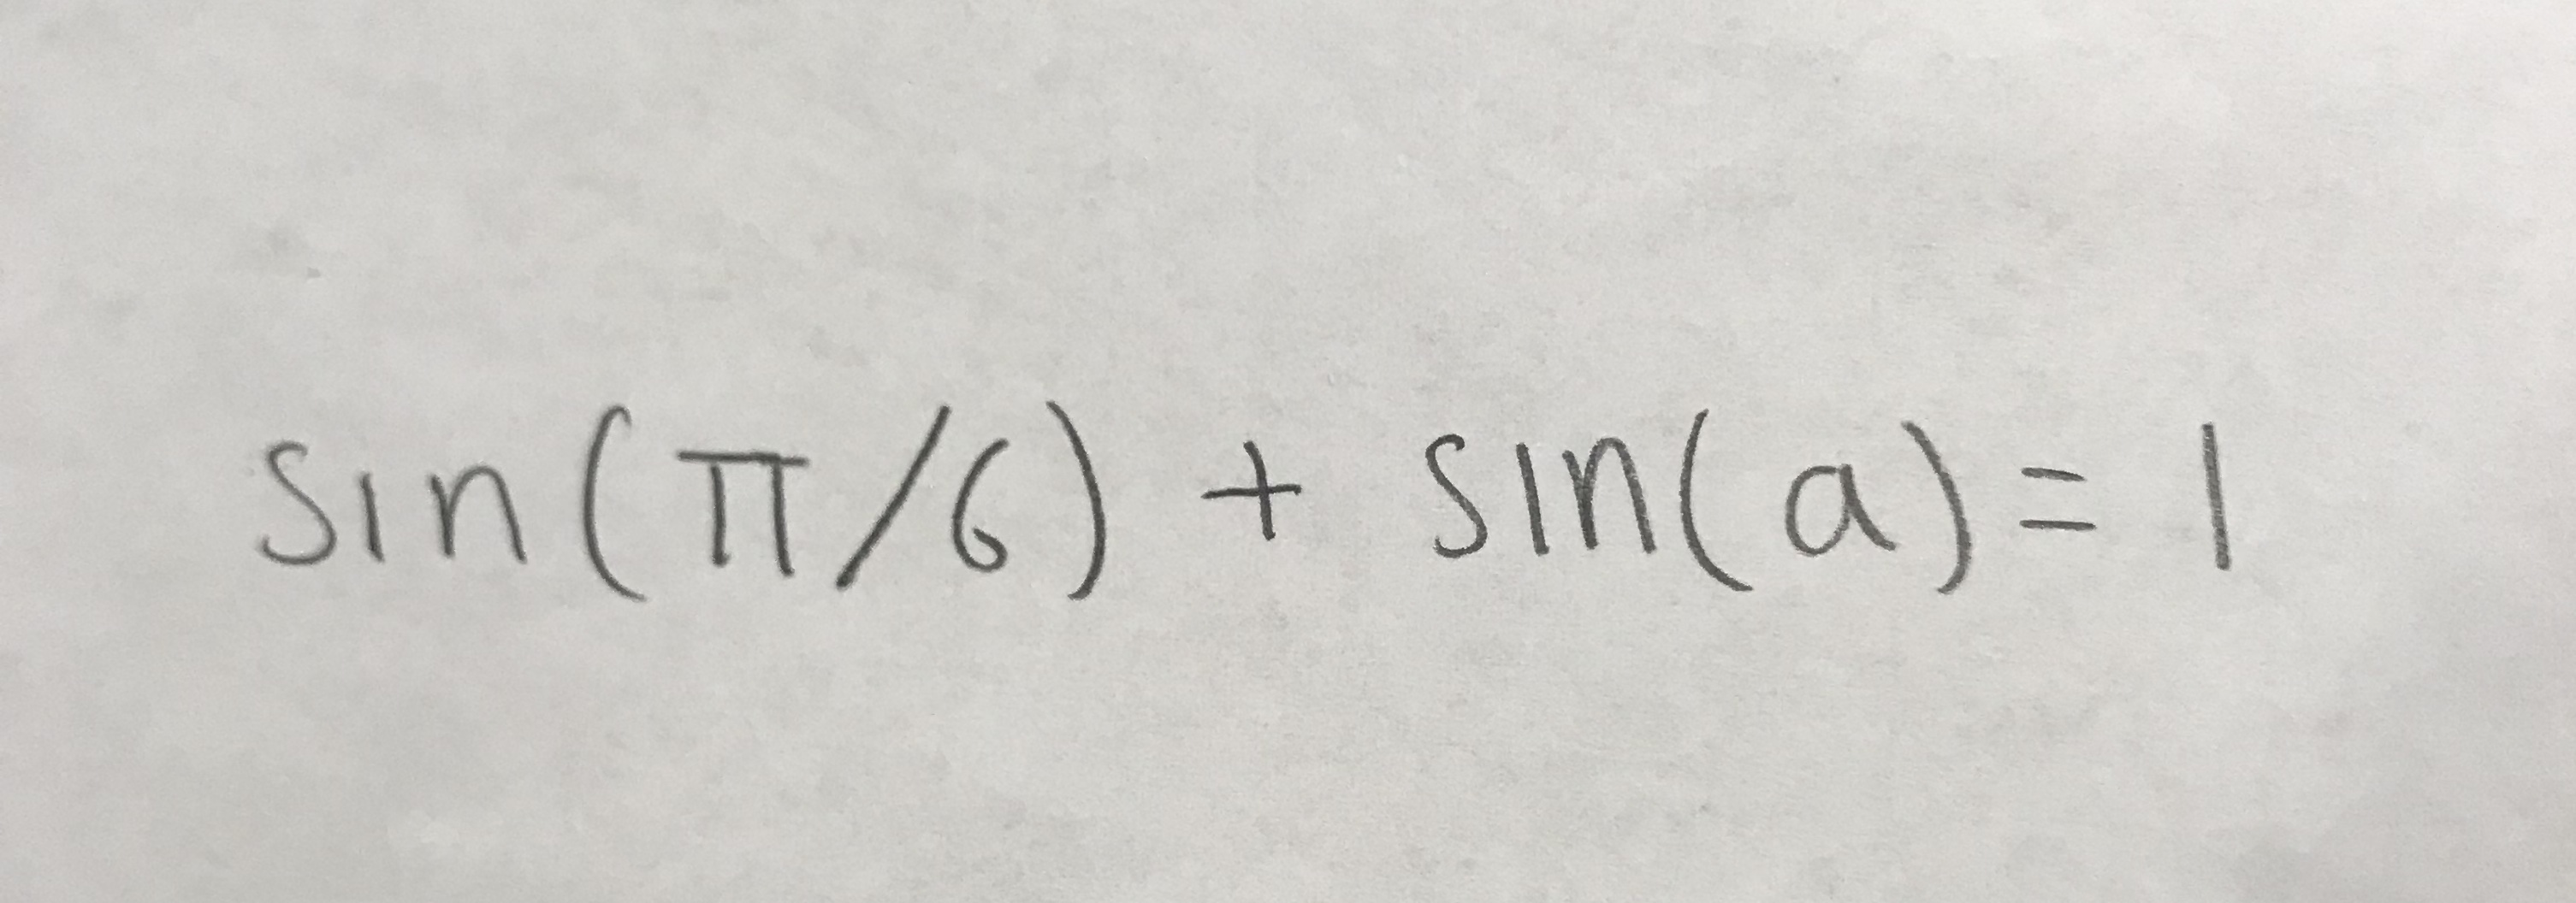 sin(π/6) + sin(a) = 1